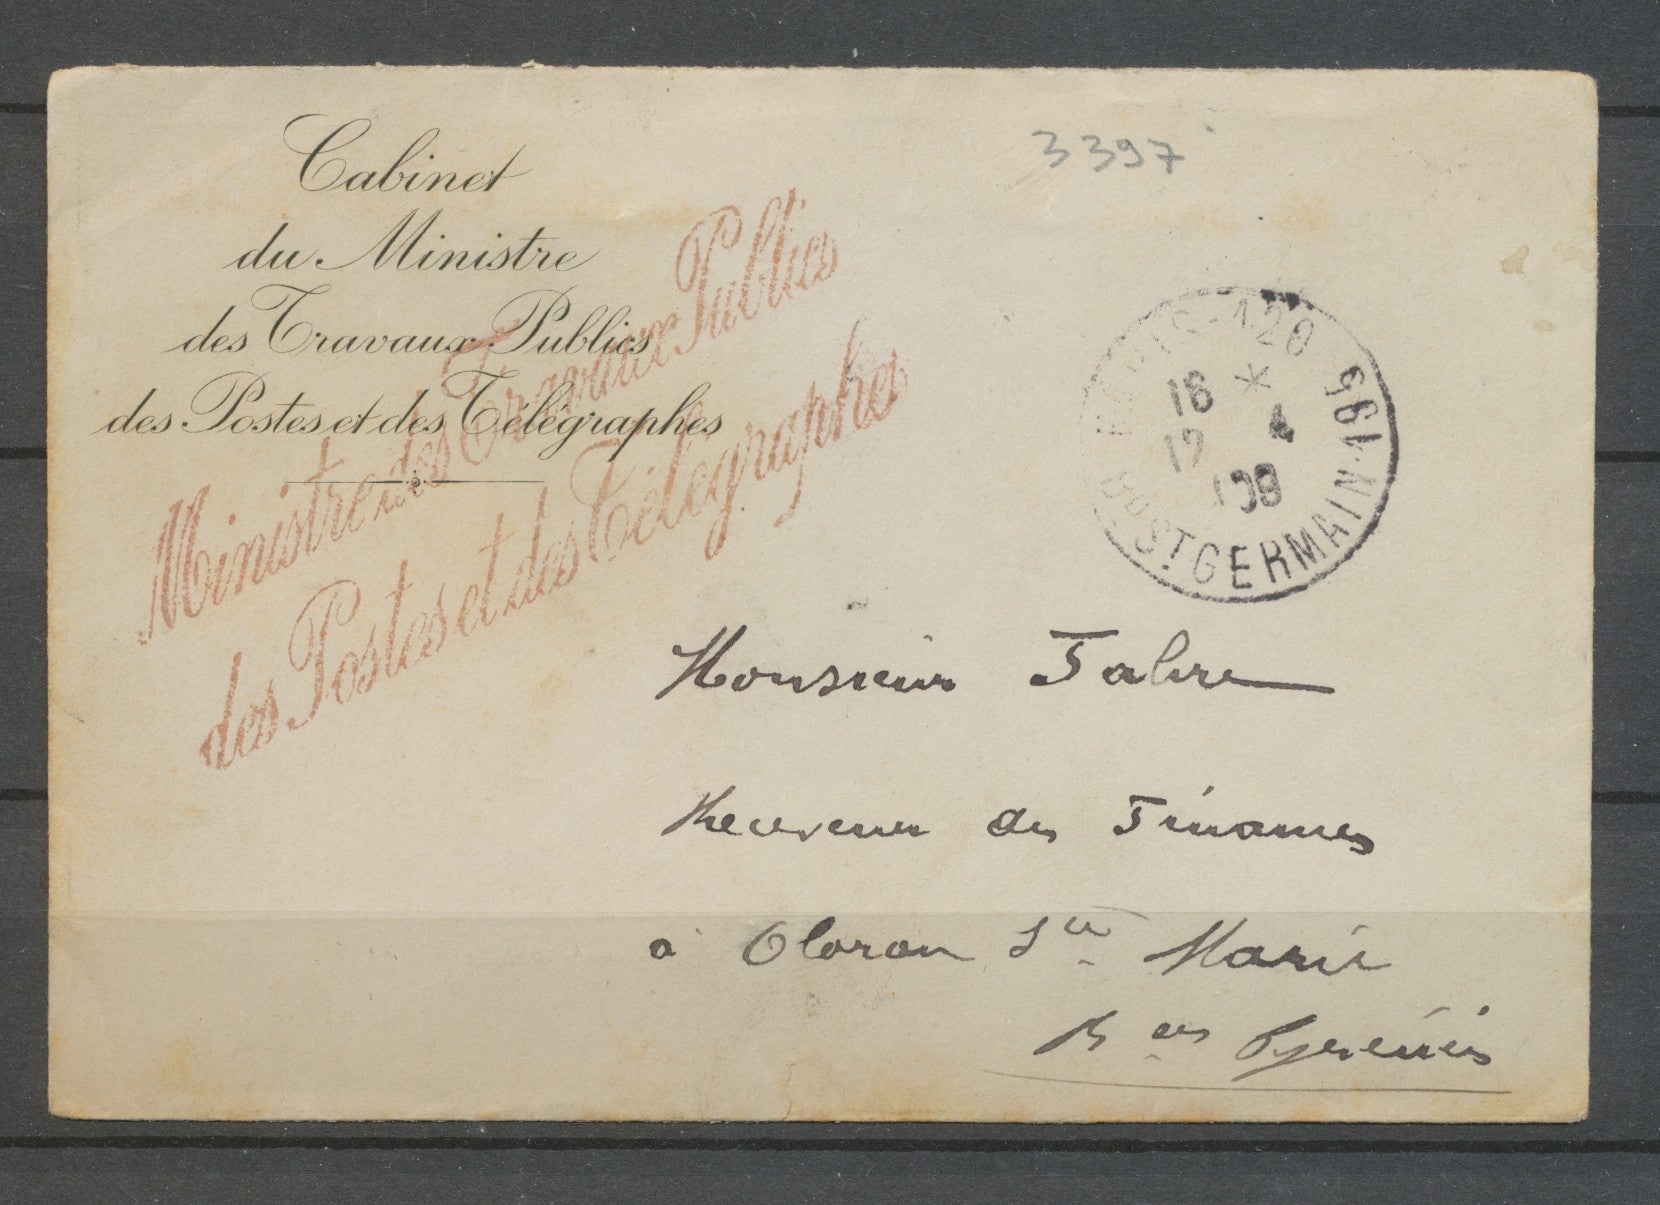 Cabinet
du Ministre
des Travaux Publics
des Postes et des Télégraphes
Ministre des Travaux Publics
des Postes et des Télégraphes
3397
PARIS-120
18 *
17 4
08
BD ST GERMAIN-195
Monsieur Fabre
Receveur des Finances
à Oloron Ste Marie
Bses Pyrénées